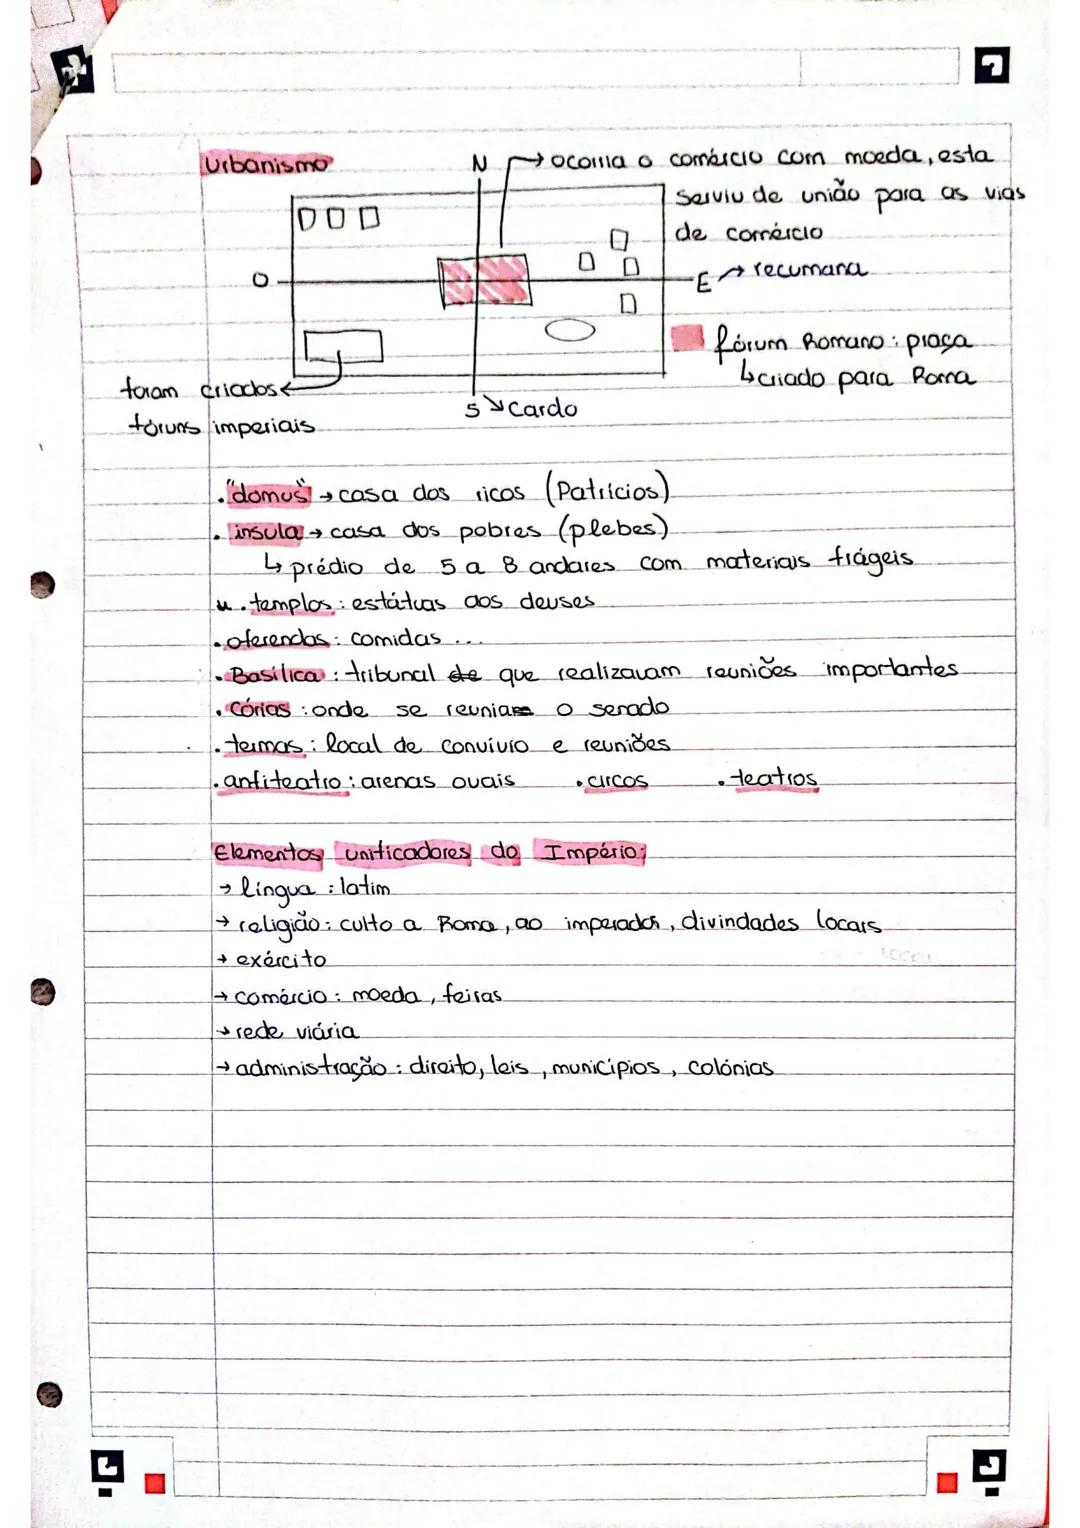 Urbanismo
N → ocorria o comércio com moeda, esta
serviu de união para as vias
de comércio
O
E → recumana
fórum Romano: praça
↳ criado para Roma
foram criados
fóruns imperiais
S ↘ Cardo
."domus" → casa dos ricos (Patrícios)
. insula → casa dos pobres (plebes)
↳ prédio de 5 a 8 andares com materiais frágeis
. templos: estátuas aos deuses
. oferendas: comidas ...
. Basílica: tribunal de que realizavam reuniões importantes
. Córias: onde se reuniam o senado
. termas: local de convívio e reuniões
. anfiteatro: arenas ovais . circos . teatros
Elementos unificadores do Império:
→ língua: latim
→ religião: culto a Roma, ao imperador, divindades locais
→ exército
→ comércio: moeda, feiras
→ rede viária
→ administração: direito, leis, municípios, colónias